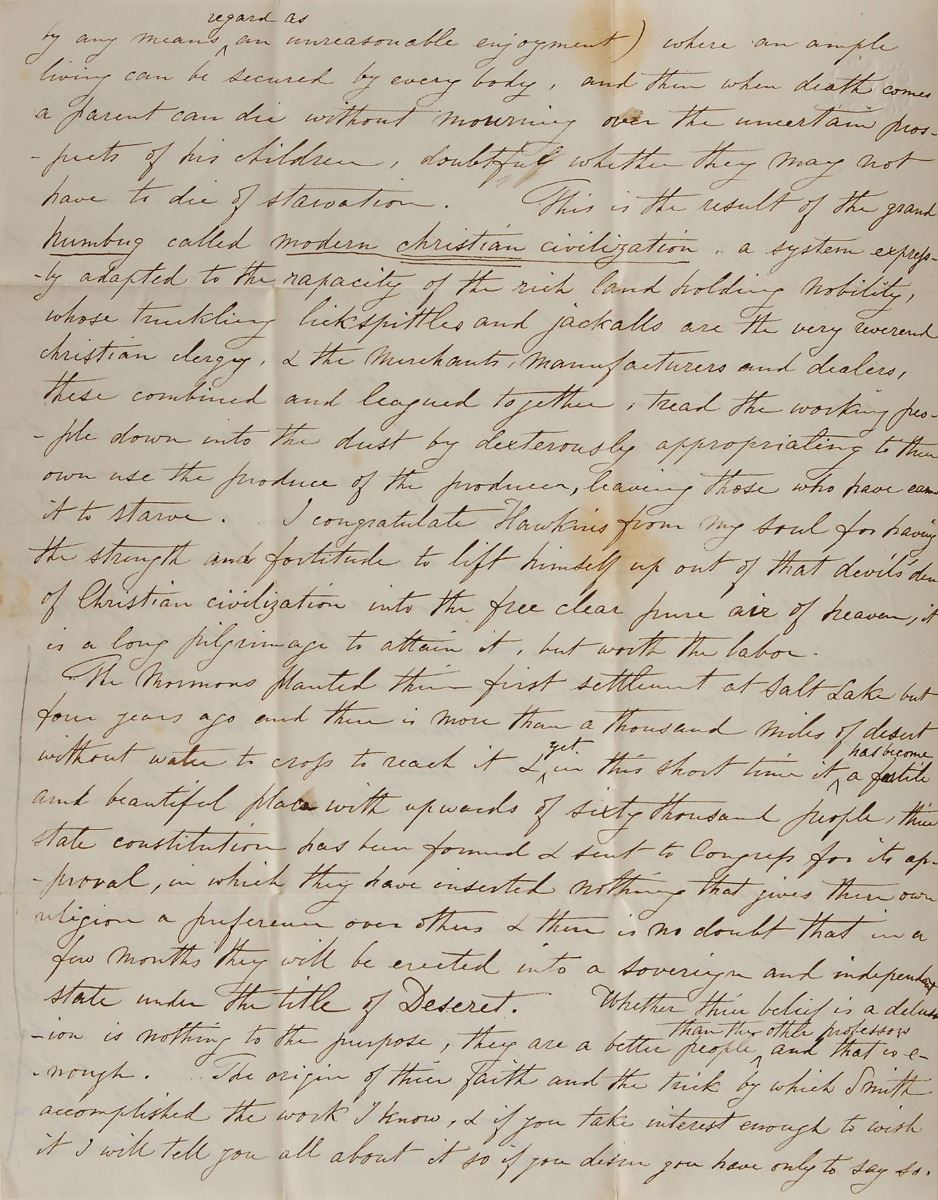 regard as
by any means ^ an unreasonable enjoyment) where an ample
living can be secured by every body, and then when death comes
a parent can die without mourning over the uncertain pros-
-pects of his children, doubtful whether they may not
have to die of starvation. This is the result of the grand
humbug called modern christian civilization. a system express-
-ly adapted to the rapacity of the rich land holding nobility,
whose truckling lickspittles and jackalls are the very reverend
christian clergy, & the merchants, manufacturers and dealers,
these combined and leagued together, tread the working peo-
-ple down into the dust by dexterously appropriating to their
own use the produce of the producer, leaving those who have earn
it to starve. I congratulate Hawkins from my soul for having
the strength and fortitude to lift himself up out of that devil's den
of Christian civilization into the free clear pure air of heaven, it
is a long pilgrimage to attain it, but worth the labor.
The Mormons planted their first settlement at Salt Lake but
four years ago and there is more than a thousand miles of desert
yet has become
without water to cross to reach it & ^ in this short time it ^ a fertile
and beautiful place with upwards of sixty thousand people, their
state constitution has been formed & sent to Congress for its ap-
-proval, in which they have inserted nothing that gives their own
religion a preference over others & there is no doubt that in a
few months they will be erected into a sovereign and independent
state under the title of Deseret. Whether their belief is a delus
than the other professors
-ion is nothing to the purpose, they are a better people ^ and that is e-
-nough. The origin of their faith and the trick by which Smith
accomplished the work I know, & if you take interest enough to wish
it I will tell you all about it so if you desire you have only to say so.